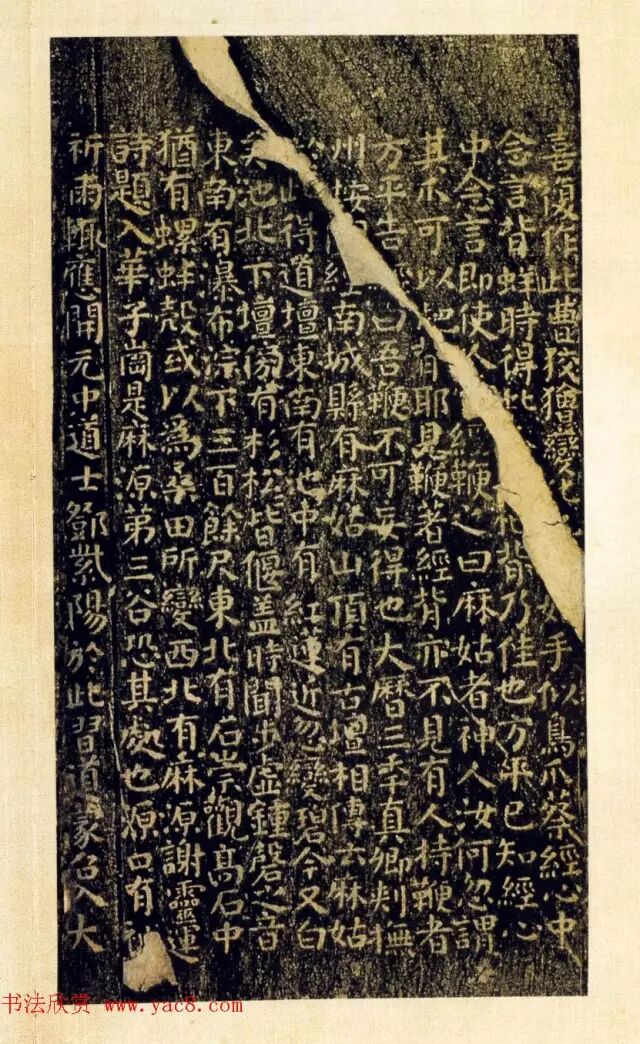 喜復作此曹狡獪變化姑手似鳥爪蔡經心中
念言背蛘時得此杷背乃佳也方平已知經心
中念言即使經鞭之曰麻姑者神人汝何忽謂
其爪可以杷背耶見鞭著經背亦不見有人持鞭者
方平告經曰吾鞭不可妄得也大曆三年真卿刾撫
州按經南城縣有麻姑山頂有古壇相傳云麻姑
於此得道壇東南有池中有紅蓮近忽變碧今又白
矣池北下壇傍有杉松皆偃盖時聞步虛鍾磬之音
東南有瀑布淙下三百餘尺東北有石崇觀高石中
猶有螺蚌殼或以為桑田所變西北有麻源謝靈運
詩題入華子崗是麻源第三谷恐其處也源口有神
祈雨輒應開元中道士鄧紫陽於此習道蒙召入大
书法欣赏 www.yac8.com